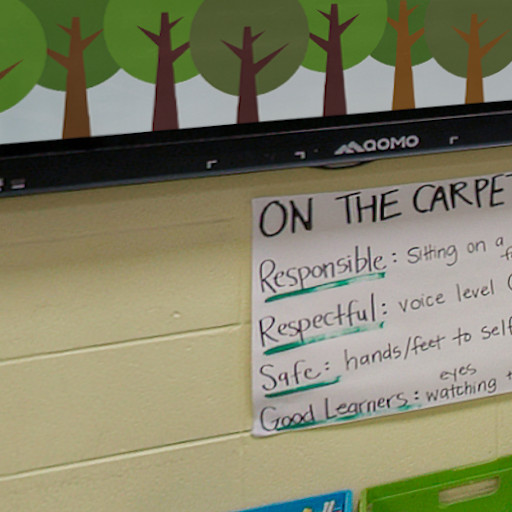 QOMO
ON THE CARPET
Responsible: Sitting on a
Respectful: voice level
Safe: hands/feet to self
eyes
Good Learners: watching